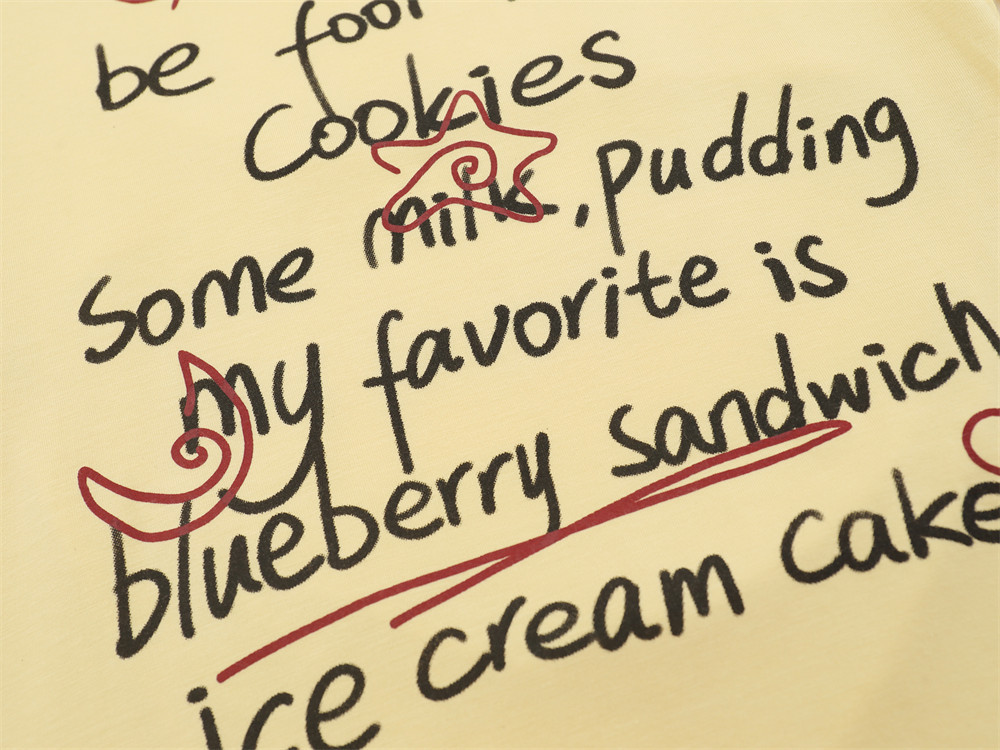 be
Cookies
Some milk, pudding
my favorite is
blueberry sandwich
ice cream cake